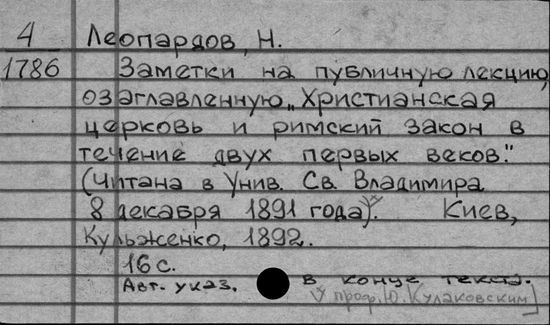 4
1786
Леопардов, Н.
Заметки на публичную лекцию,
озаглавленную „Христианская
церковь и римский закон в
течение двух первых веков."
(Читана в Унив. Св. Владимира
8 декабря 1891 года). Киев,
Кульженко, 1892.
16 с.
Авт. указ. в конце текста.
проф. Ю. Кулаковским]